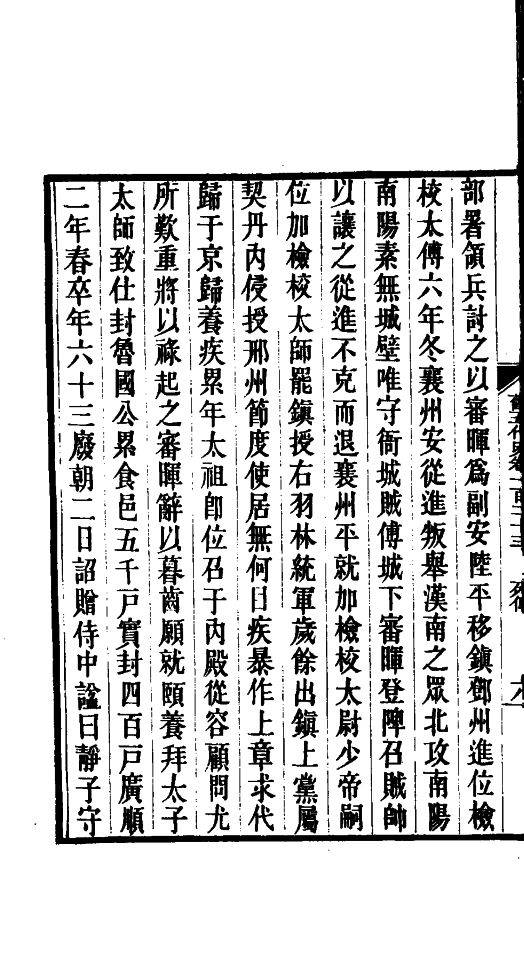 部署領兵討之以審暉爲副安陸平移鎭鄧州進位檢
校太傅六年冬襄州安從進叛舉漢南之眾北攻南陽
南陽素無城壁唯守衙城賊傅城下審暉登陴召賊帥
以讓之從進不克而退襄州平就加檢校太尉少帝嗣
位加檢校太師罷鎭授右羽林統軍歲餘出鎭上黨屬
契丹內侵授邢州節度使居無何日疾暴作上章求代
歸于京歸養疾累年太祖卽位召于內殿從容顧問尤
所歎重將以祿起之審暉辭以暮齒願就頤養拜太子
太師致仕封魯國公累食邑五千戸實封四百戸廣順
二年春卒年六十三廢朝二日詔贈侍中諡曰靜子守